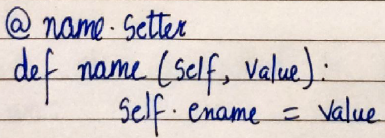 @ name.setter
def name (self, value):
self.ename = value